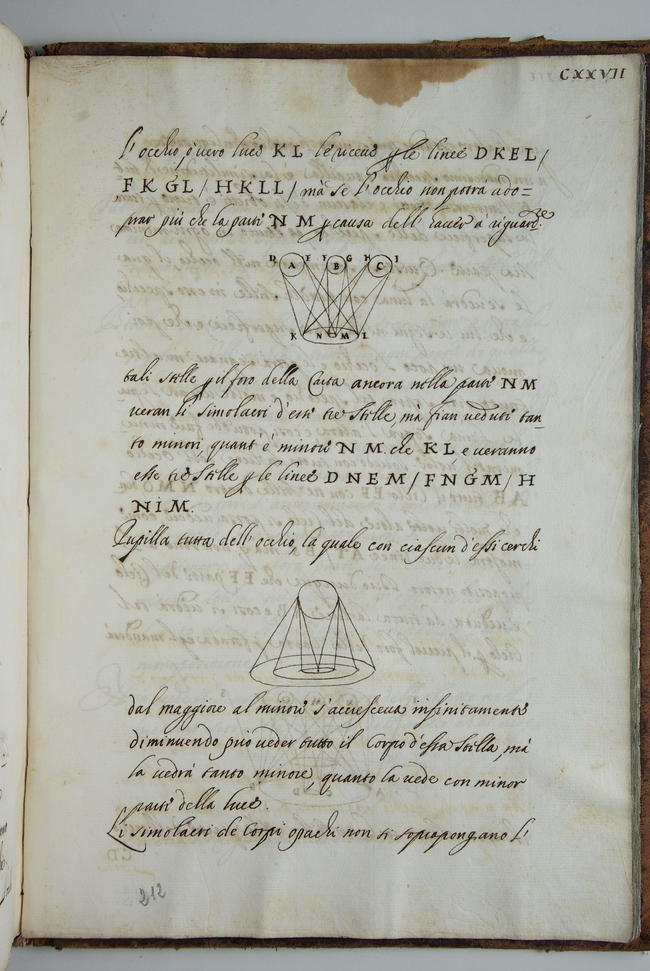 CXXVII
l'occhio, ò vero luce KL le riceve ꝑ le linee DKEL/
FKGL/HKLL/mà se l'occhio non potrà ado=
prar più che la parte NM ꝑ causa dell' haver à riguard.re
D A E F B G H C I
K N M L
tali stelle ꝑ il foro della Carta ancora nella parte NM
veran li simolacri d'essi tre stelle, mà fian veduti tan
to minori, quant' è minore NM. che KL, e veranno
esse tre stelle ꝑ le linee DNEM/FNGM/H
NIM.
Pupilla tutta dell' occhio, la quale con ciascun d'essi cerchi
dal maggiore al minore s'accresceva infinitamente
diminuendo può veder tutto il Corpo d'essa stella, mà
la vedrà tanto minore, quanto la vede con minor
parte della luce.
Li simolacri de Corpi opachi non si soprapongano l'
212